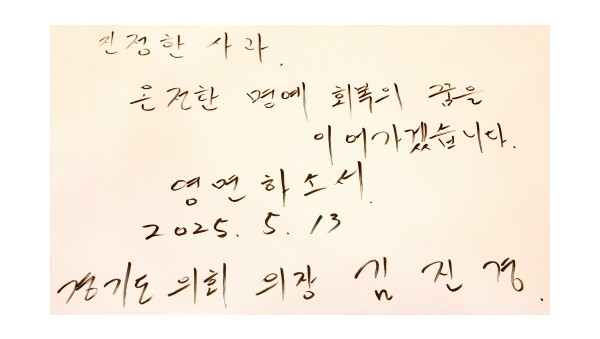 진정한 사과.
온전한 명예 회복의 꿈을
이어가겠습니다.
영면하소서.
2025. 5. 13
경기도의회 의장 김진경.